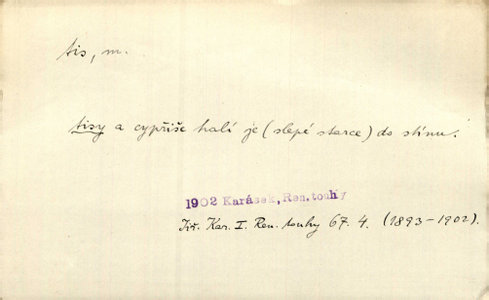 tis, m.
tisy a cypřiše halí je (slepé starce) do stínu.
1902 Karásek, Ren.touhy
Jiř. Kar. I. Ren. touhy 67. 4. (1893-1902).